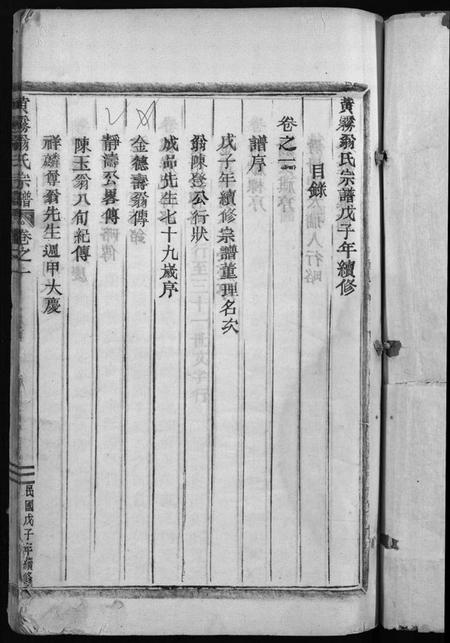 黄霧翁氏宗譜戊子年續修
目錄
卷之一
譜序
戊子年續修宗譜董理名次
翁陳登公行狀
成茆先生七十九歲序
金德壽翁傳
靜濤公畧傳
陳玉翁八旬紀傳
祥麟尊翁先生週甲大慶
黄霧翁氏宗譜
卷之一
民國戊子年續修